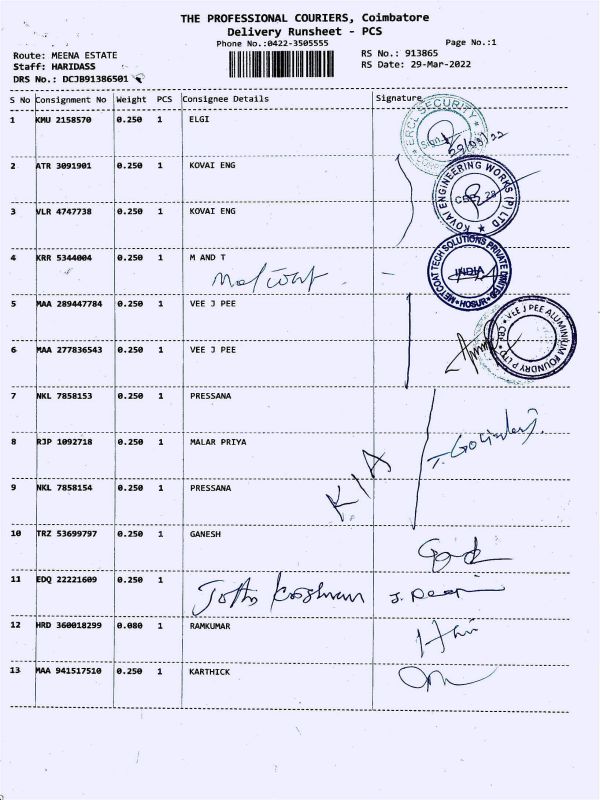 THE PROFESSIONAL COURIERS, Coimbatore
Delivery Runsheet - PCS
Phone No.:0422-3505555
Page No.:1
Route: MEENA ESTATE
RS No.: 913865
Staff: HARIDASS
RS Date: 29-Mar-2022
DRS No.: DCJB91386501
S No Consignment No Weight PCS Consignee Details Signature
1 KMU 2158570 0.250 1 ELGI
ERCL SECURITY
29/03/22
2 ATR 3091901 0.250 1 KOVAI ENG
KOVAI ENGINEERING WORKS (P) LTD
3 VLR 4747738 0.250 1 KOVAI ENG
4 KRR 5344004 0.250 1 M AND T
METCOAT TECH SOLUTIONS PRIVATE LIMITED
INDIA
HOSUR
5 MAA 289447784 0.250 1 VEE J PEE
VEE J PEE ALUMINIUM FOUNDRY P LTD
6 MAA 277836543 0.250 1 VEE J PEE
7 NKL 7858153 0.250 1 PRESSANA
8 RJP 1092718 0.250 1 MALAR PRIYA
KIA
9 NKL 7858154 0.250 1 PRESSANA
10 TRZ 53699797 0.250 1 GANESH
11 EDQ 22221609 0.250 1
12 HRD 360018299 0.080 1 RAMKUMAR
13 MAA 941517510 0.250 1 KARTHICK